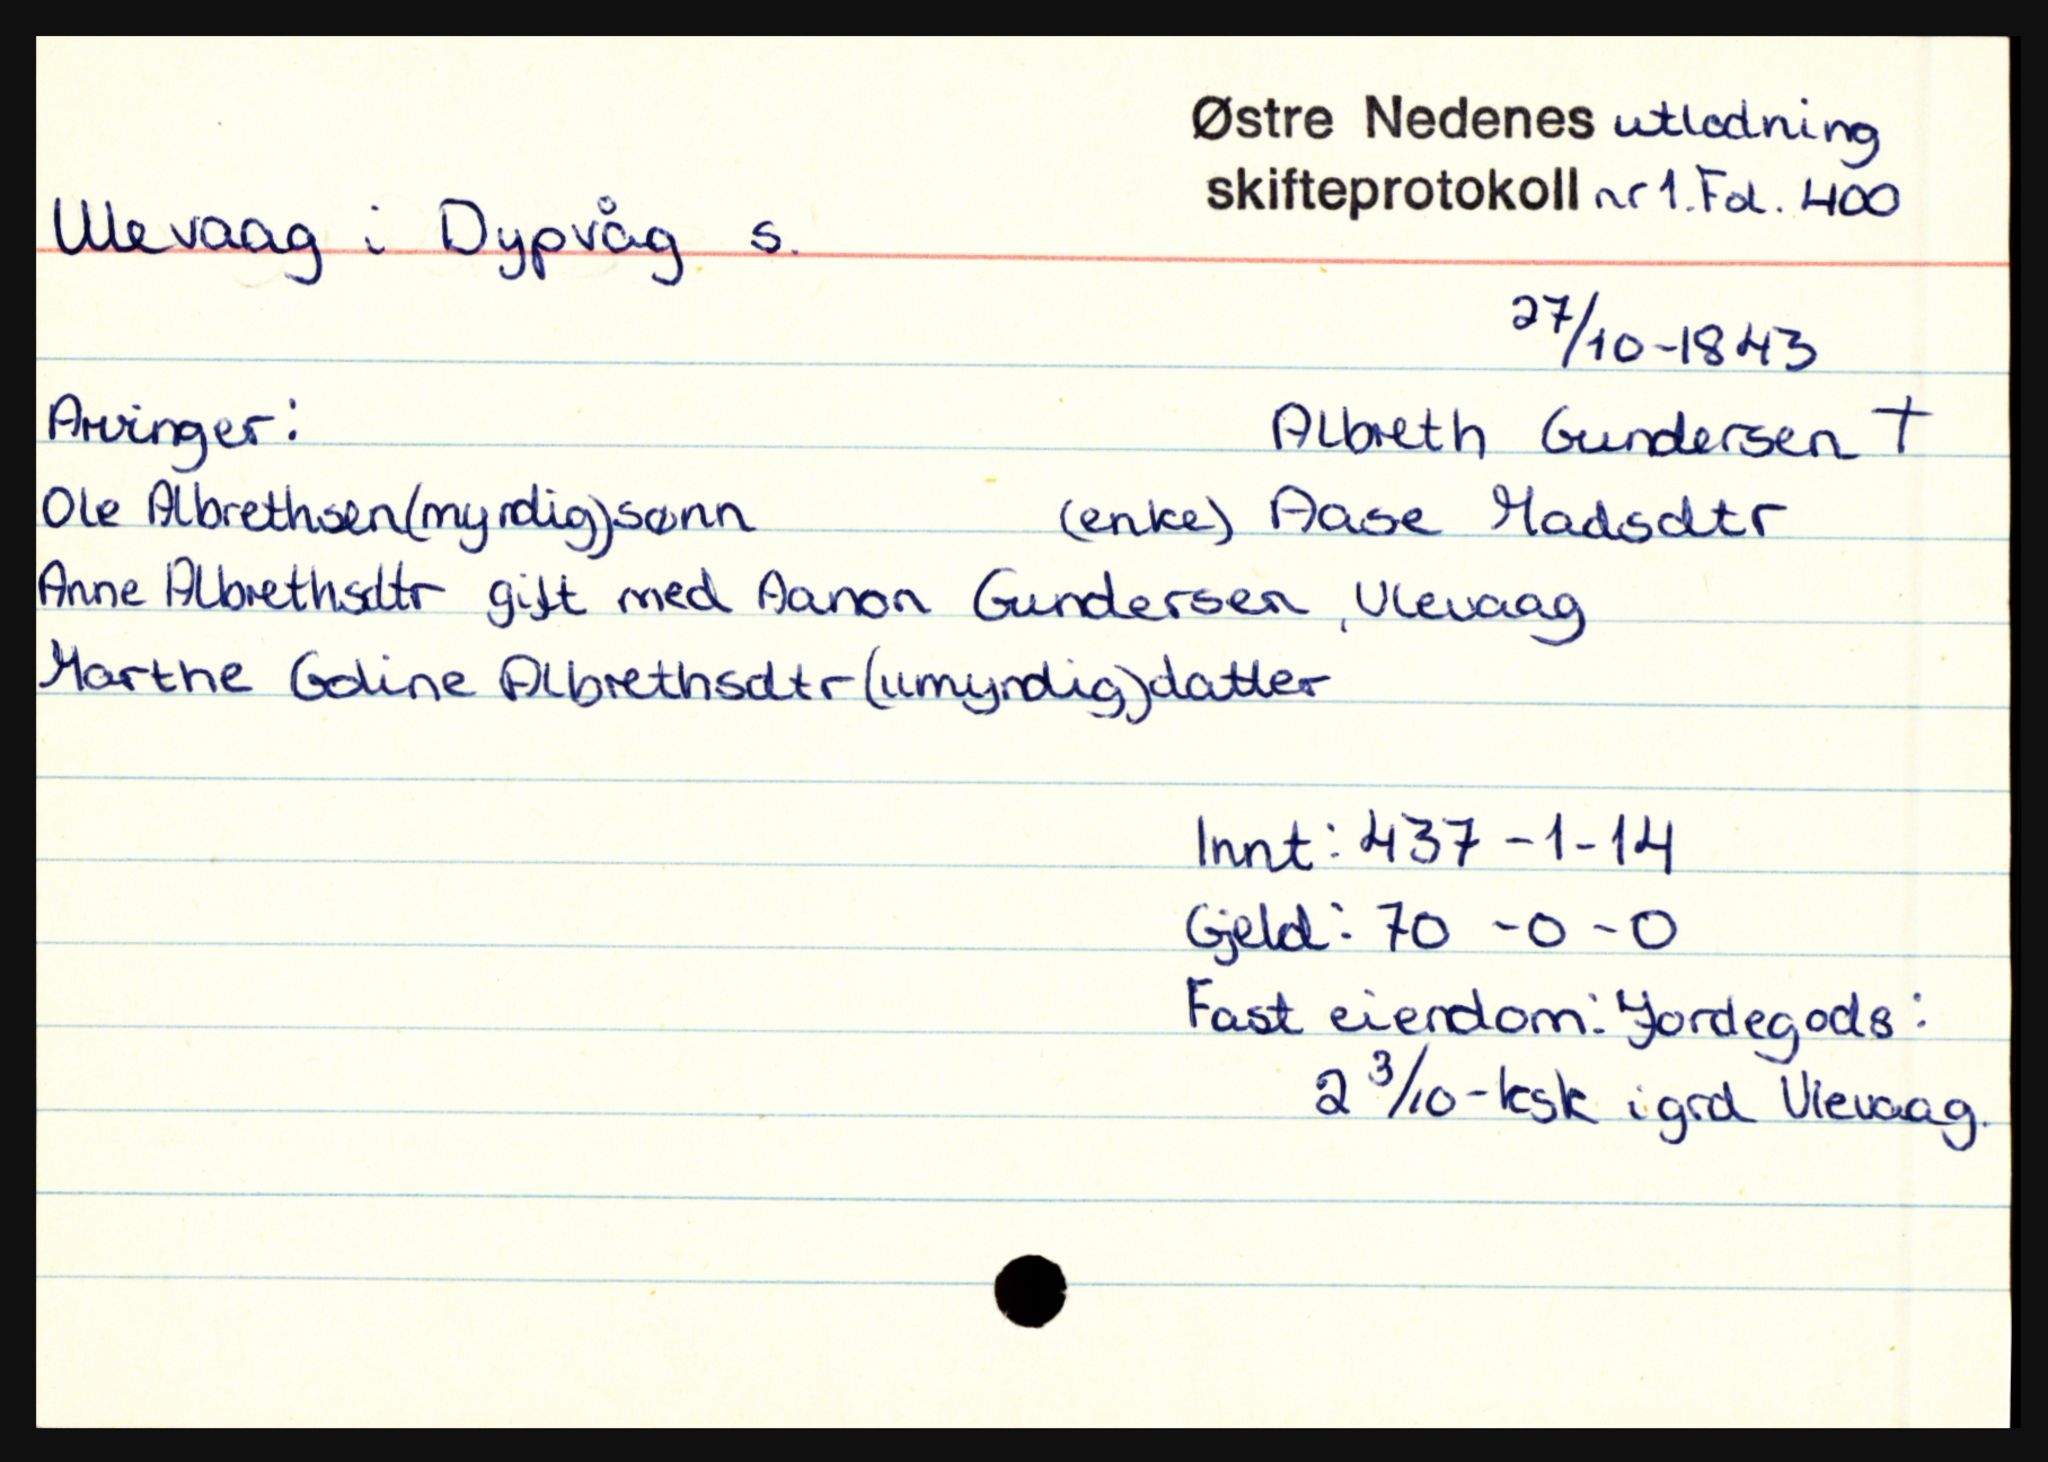 Østre Nedenes utlodning
skifteprotokoll nr 1. Fol. 400
Ulevaag i Dypvåg s.
27/10-1843
Arvinger: Albreth Gundersen †
Ole Albrethsen (myndig) sønn (enke) Aase Madsdtr
Anne Albrethsdtr gift med Aanon Gundersen, Ulevaag
Marthe Goline Albrethsdtr (umyndig) datter
Innt: 437-1-14
Gjeld: 70-0-0
Fast eiendom: Jordegods:
2 3/10-ksk i grd Ulevaag.